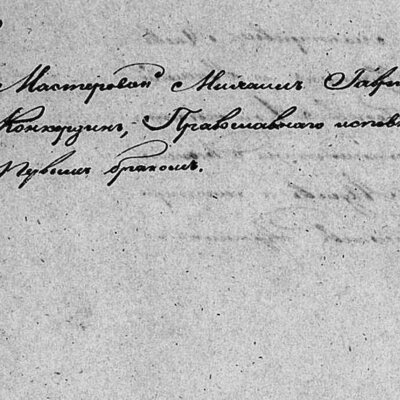 Мастеровой Михаилъ Гавр
Конкордин, Православнаго испов
Первымъ бракомъ.